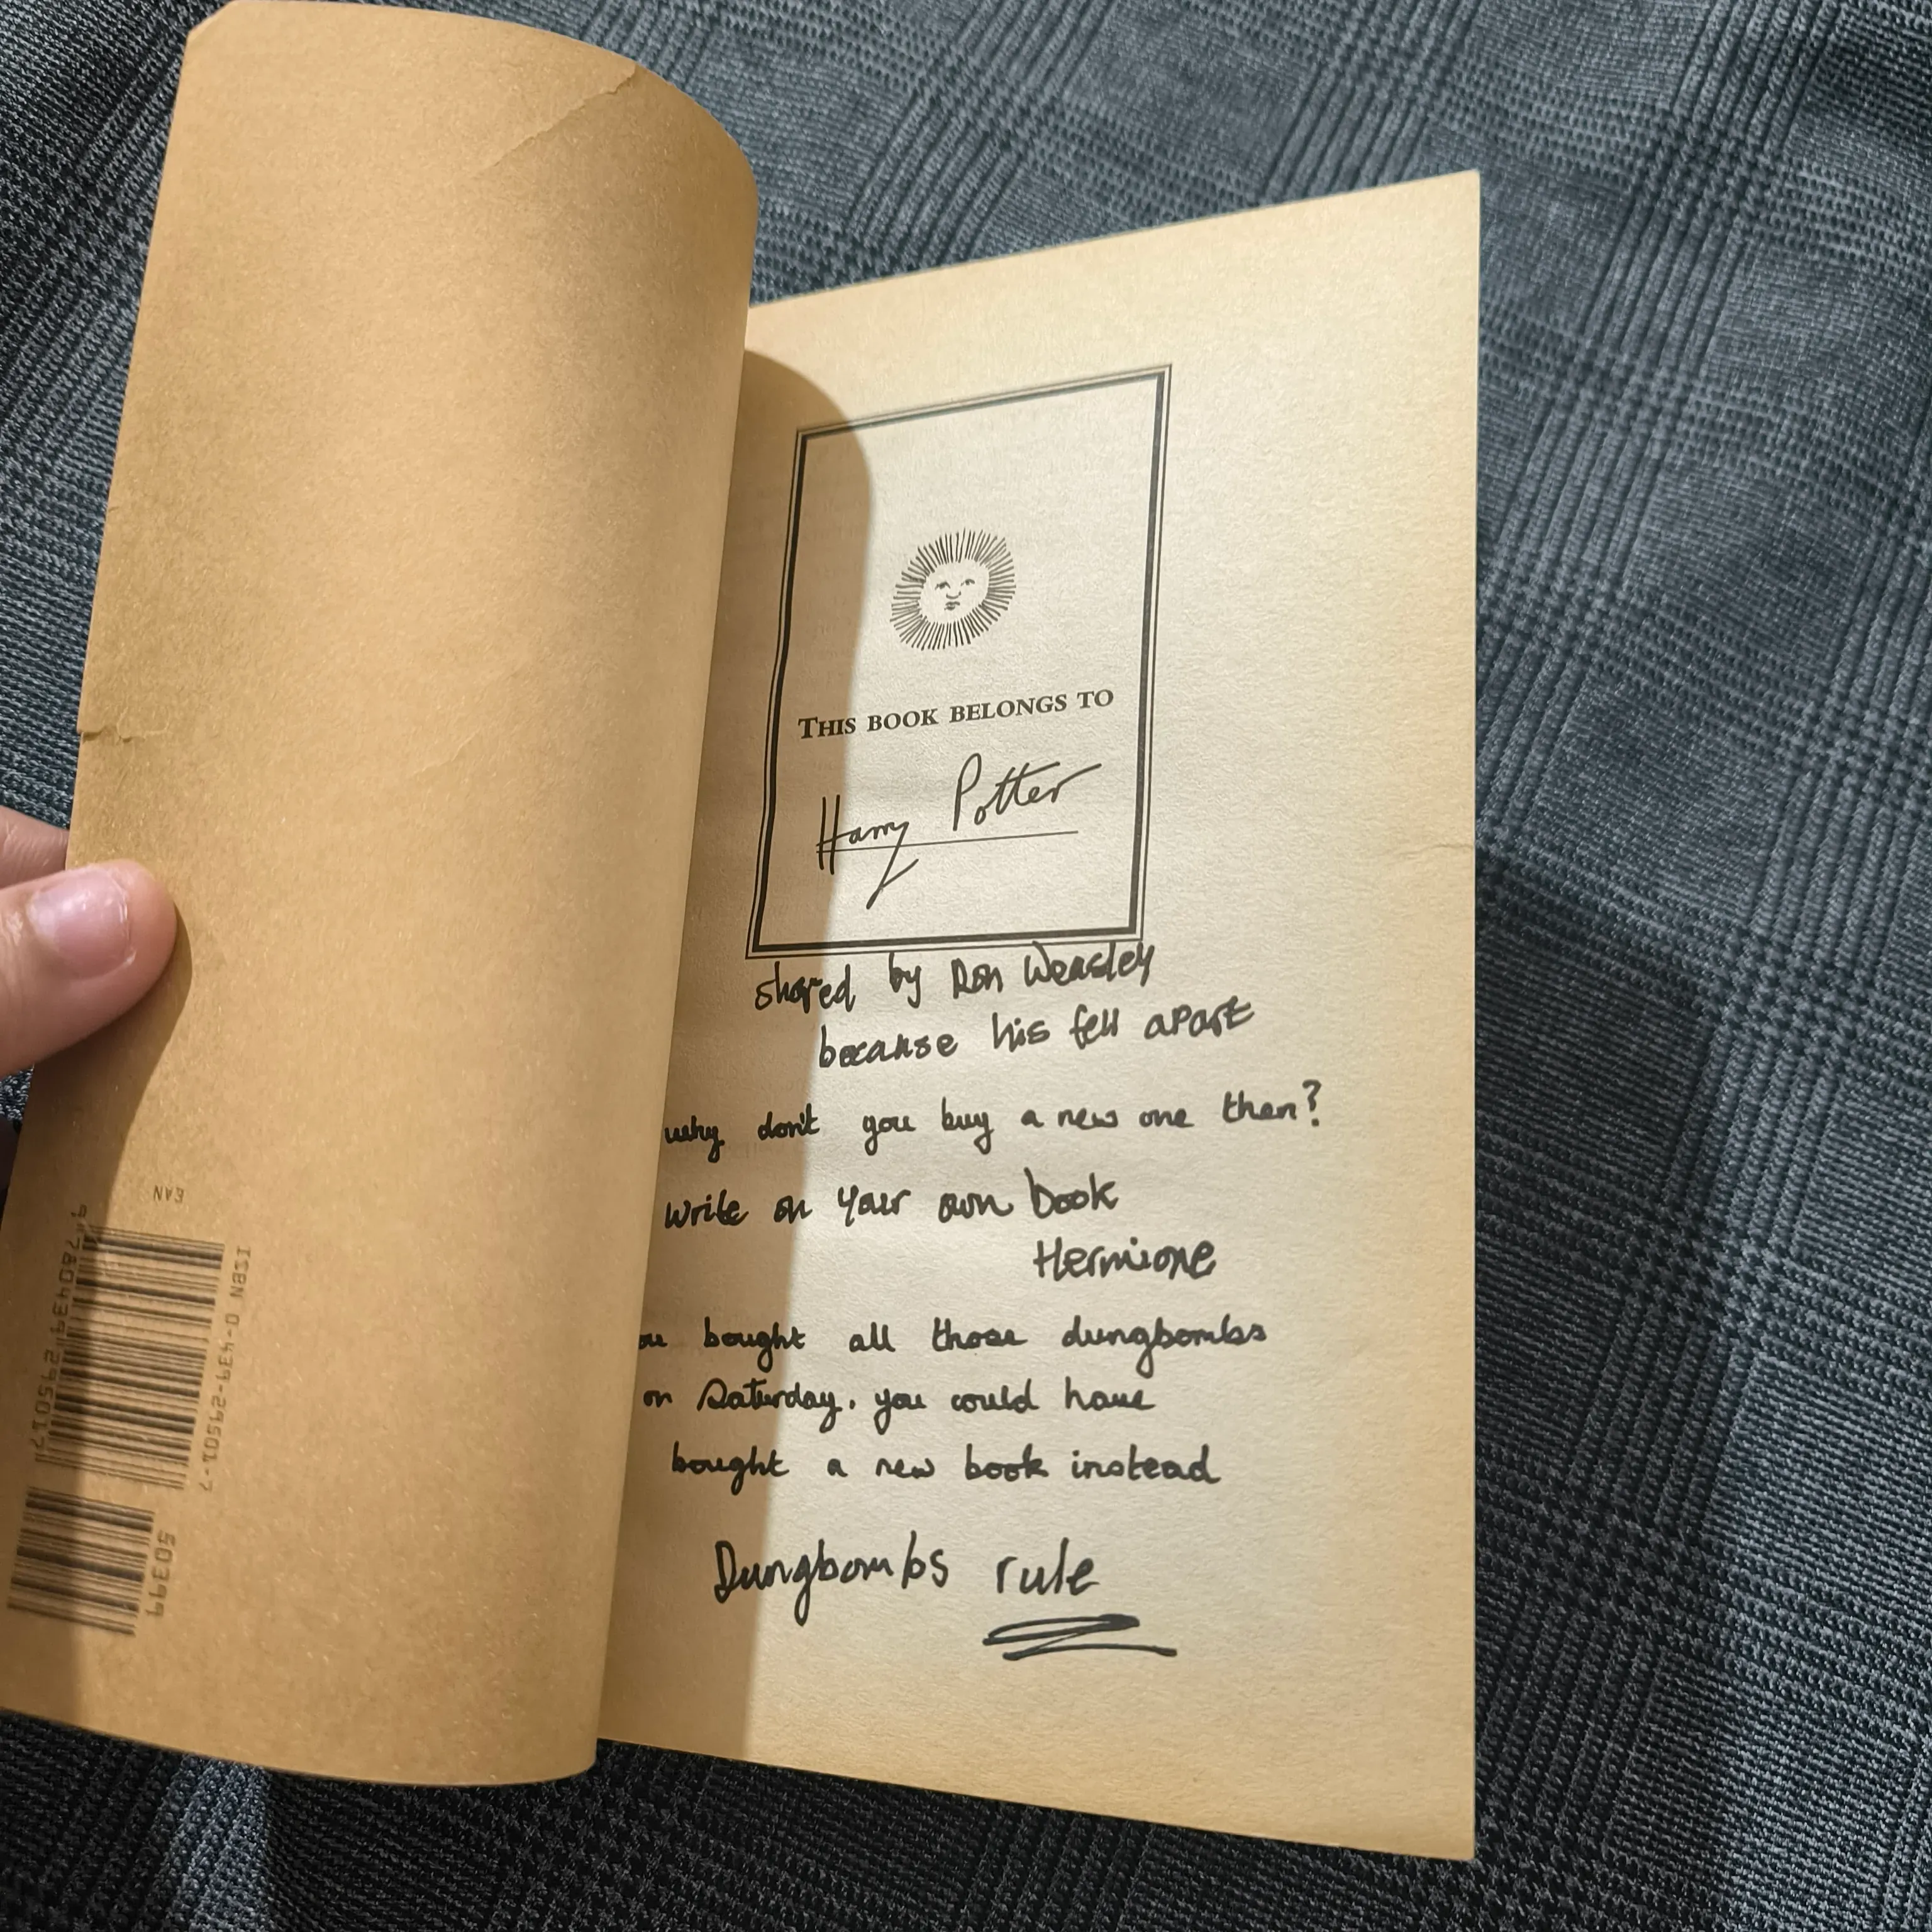 THIS BOOK BELONGS TO
Harry Potter
shared by Ron Weasley
because his fell apart
why don't you buy a new one then?
write on your own book
Hermione
ou bought all those dungbombs
on Saturday. you could have
bought a new book instead
Dungbombs rule
EAN
ISBN 0-439-29501-7
9 780439 295017
50399